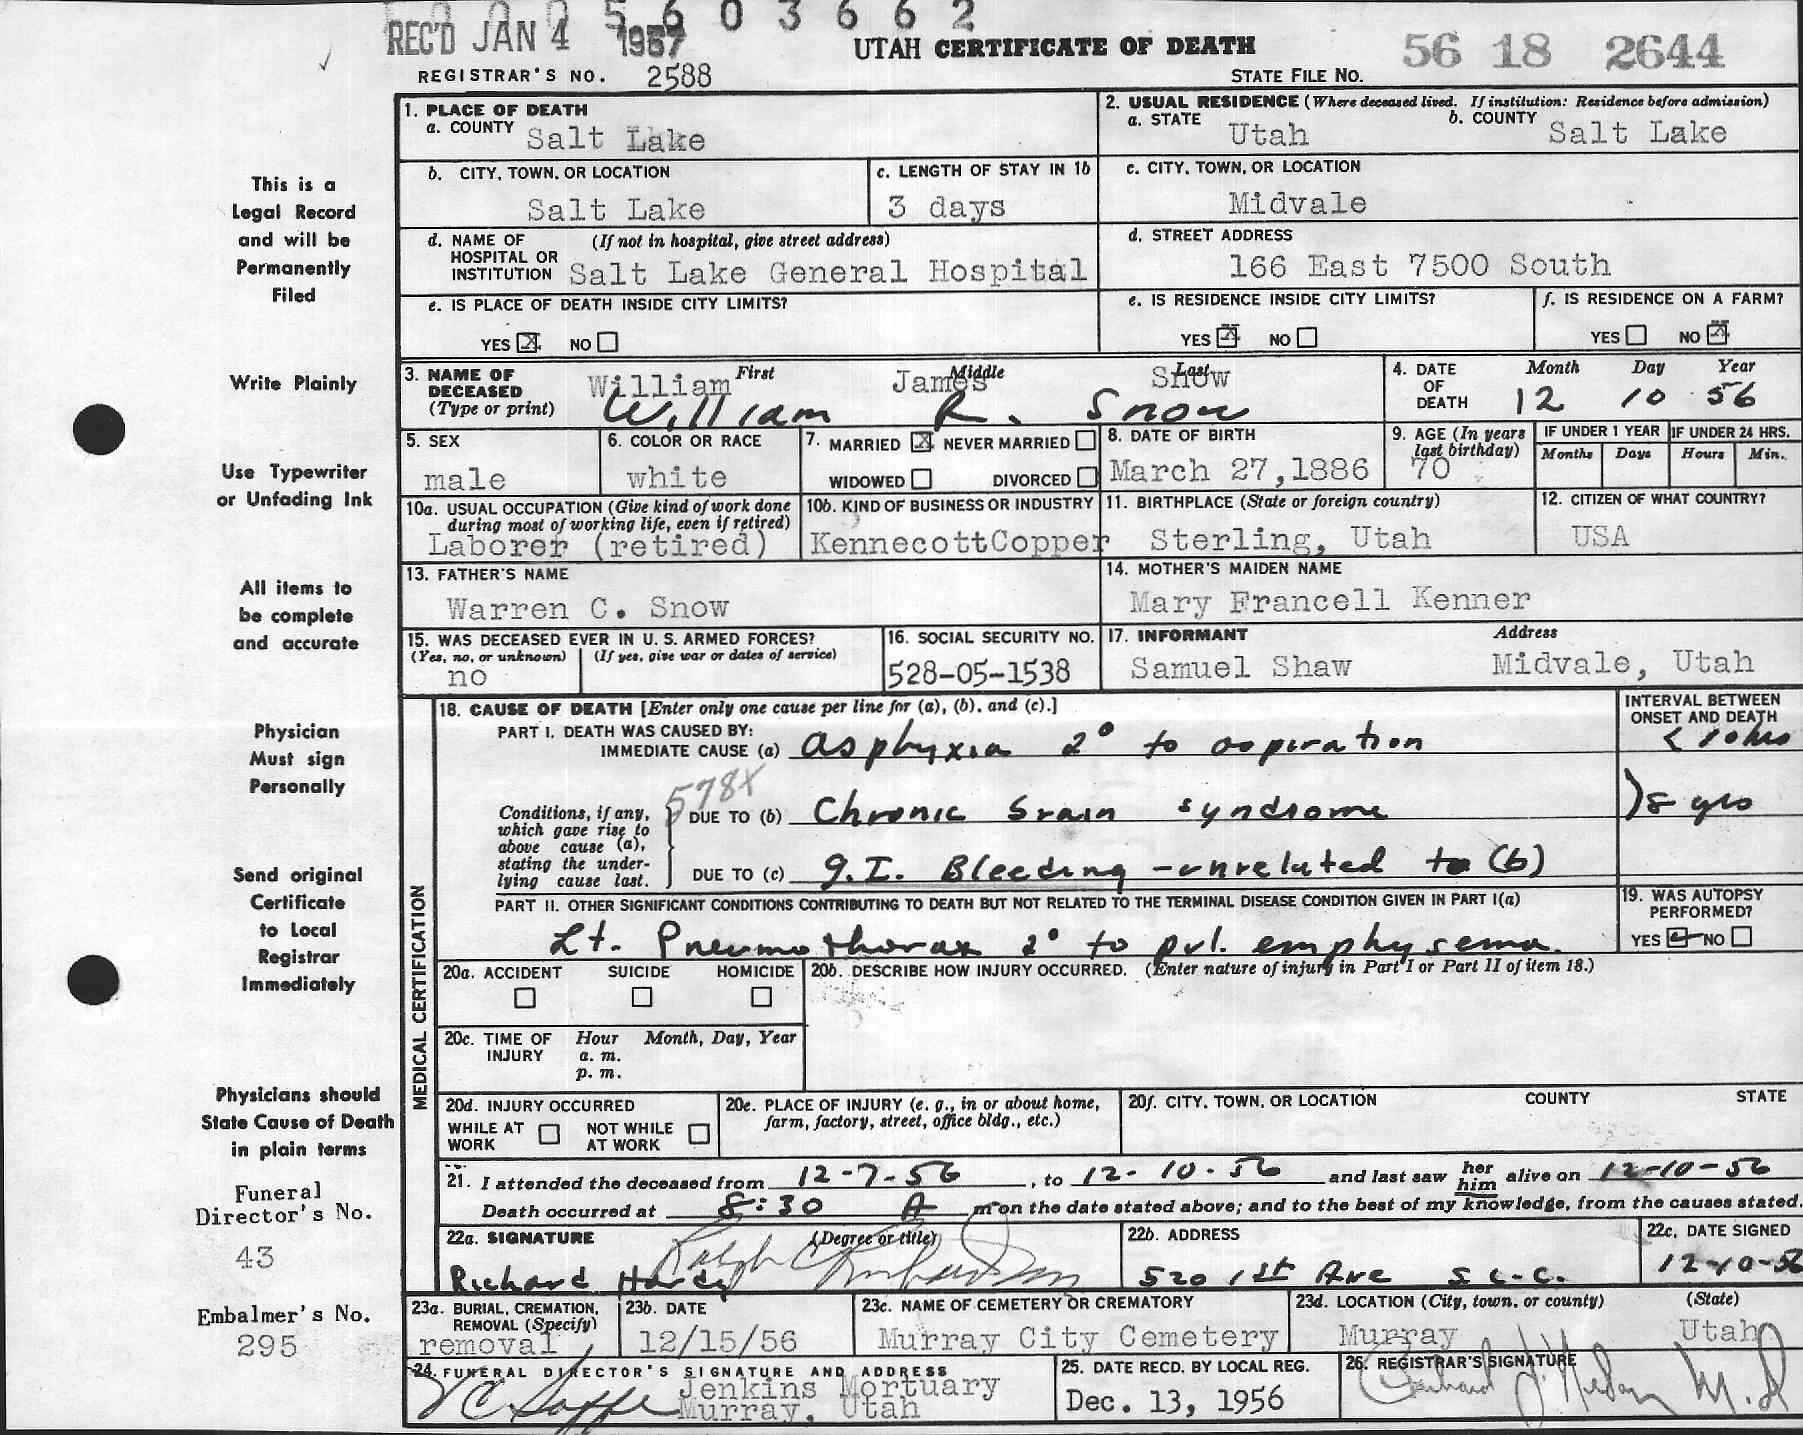 0 0 0 5 6 0 3 6 6 2
REC'D JAN 4 1957
UTAH CERTIFICATE OF DEATH
56 18 2644
REGISTRAR'S NO. 2588
STATE FILE NO.
1. PLACE OF DEATH
a. COUNTY Salt Lake
2. USUAL RESIDENCE (Where deceased lived. If institution: Residence before admission)
a. STATE Utah b. COUNTY Salt Lake
b. CITY, TOWN, OR LOCATION
Salt Lake
c. LENGTH OF STAY IN 1b
3 days
c. CITY, TOWN, OR LOCATION
Midvale
d. NAME OF HOSPITAL OR INSTITUTION (If not in hospital, give street address)
Salt Lake General Hospital
d. STREET ADDRESS
166 East 7500 South
e. IS PLACE OF DEATH INSIDE CITY LIMITS?
YES X NO
e. IS RESIDENCE INSIDE CITY LIMITS?
YES X NO
f. IS RESIDENCE ON A FARM?
YES NO X
3. NAME OF DECEASED (Type or print)
First Middle Last
William James Snow
William R. Snow
4. DATE OF DEATH
Month Day Year
12 10 56
5. SEX
male
6. COLOR OR RACE
white
7. MARRIED X NEVER MARRIED
WIDOWED DIVORCED
8. DATE OF BIRTH
March 27,1886
9. AGE (In years last birthday)
70
IF UNDER 1 YEAR
Months Days
IF UNDER 24 HRS.
Hours Min.
10a. USUAL OCCUPATION (Give kind of work done during most of working life, even if retired)
Laborer (retired)
10b. KIND OF BUSINESS OR INDUSTRY
KennecottCopper
11. BIRTHPLACE (State or foreign country)
Sterling, Utah
12. CITIZEN OF WHAT COUNTRY?
USA
13. FATHER'S NAME
Warren C. Snow
14. MOTHER'S MAIDEN NAME
Mary Francell Kenner
15. WAS DECEASED EVER IN U. S. ARMED FORCES?
(Yes, no, or unknown) (If yes, give war or dates of service)
no
16. SOCIAL SECURITY NO.
528-05-1538
17. INFORMANT Address
Samuel Shaw Midvale, Utah
MEDICAL CERTIFICATION
18. CAUSE OF DEATH [Enter only one cause per line for (a), (b), and (c).]
INTERVAL BETWEEN ONSET AND DEATH
PART I. DEATH WAS CAUSED BY:
IMMEDIATE CAUSE (a) asphyxia 2° to aspiration
578X
Conditions, if any, which gave rise to above cause (a), stating the underlying cause last.
DUE TO (b) Chronic brain syndrome
8 yrs
DUE TO (c) G.I. Bleeding - unrelated to (b)
PART II. OTHER SIGNIFICANT CONDITIONS CONTRIBUTING TO DEATH BUT NOT RELATED TO THE TERMINAL DISEASE CONDITION GIVEN IN PART I(a)
Lt. Pneumothorax 2° to pul. emphysema
19. WAS AUTOPSY PERFORMED?
YES NO
20a. ACCIDENT SUICIDE HOMICIDE
20b. DESCRIBE HOW INJURY OCCURRED. (Enter nature of injury in Part I or Part II of item 18.)
20c. TIME OF INJURY
Hour Month, Day, Year
a. m.
p. m.
20d. INJURY OCCURRED
WHILE AT WORK NOT WHILE AT WORK
20e. PLACE OF INJURY (e. g., in or about home, farm, factory, street, office bldg., etc.)
20f. CITY, TOWN, OR LOCATION COUNTY STATE
21. I attended the deceased from 12-7-56, to 12-10-56 and last saw her him alive on 12-10-56
Death occurred at 8:30 A m on the date stated above; and to the best of my knowledge, from the causes stated.
22a. SIGNATURE (Degree or title)
Richard Hardy Ralph C Richardson
22b. ADDRESS
520 1st Ave S L.C.
22c. DATE SIGNED
12-10-56
23a. BURIAL, CREMATION, REMOVAL (Specify)
removal
23b. DATE
12/15/56
23c. NAME OF CEMETERY OR CREMATORY
Murray City Cemetery
23d. LOCATION (City, town, or county) (State)
Murray Utah
24. FUNERAL DIRECTOR'S SIGNATURE AND ADDRESS
Jenkins Mortuary
Murray, Utah
25. DATE RECD. BY LOCAL REG.
Dec. 13, 1956
26. REGISTRAR'S SIGNATURE
M.D
This is a
Legal Record
and will be
Permanently
Filed
Write Plainly
Use Typewriter
or Unfading Ink
All items to
be complete
and accurate
Physician
Must sign
Personally
Send original
Certificate
to Local
Registrar
Immediately
Physicians should
State Cause of Death
in plain terms
Funeral
Director's No.
43
Embalmer's No.
295